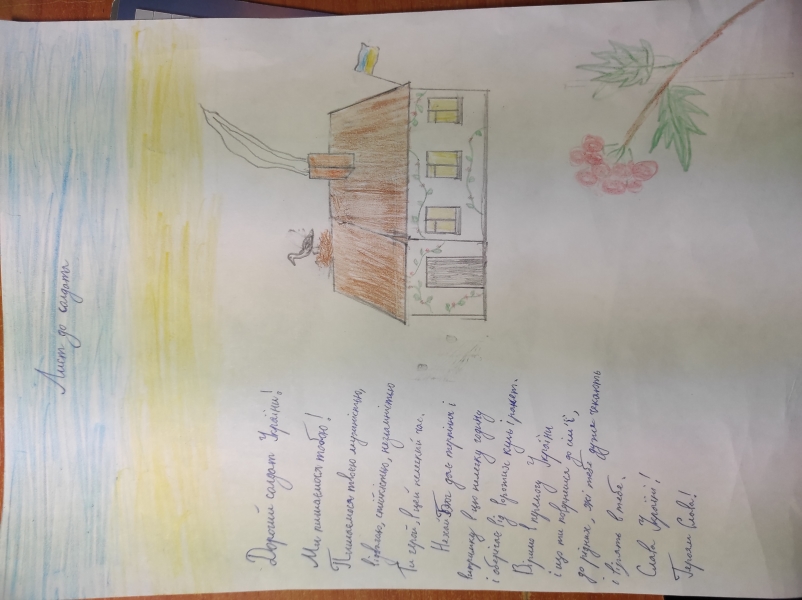 Лист до солдата
Дорогий солдат України!
Ми пишаємося тобою!
Пишаємося твоєю мужністю,
відвагою, стійкістю, незламністю
Ти герой, в цей нелегкий час.
Нехай Бог дає терпіння і
витримку в цю нелегку годину
і оберігає від ворожих куль і ракет.
Віримо в перемогу України
і що ти повернишся до сім'ї,
до рідних, які тебе дуже чекають
і вірять в тебе.
Слава Україні!
Героям Слава!